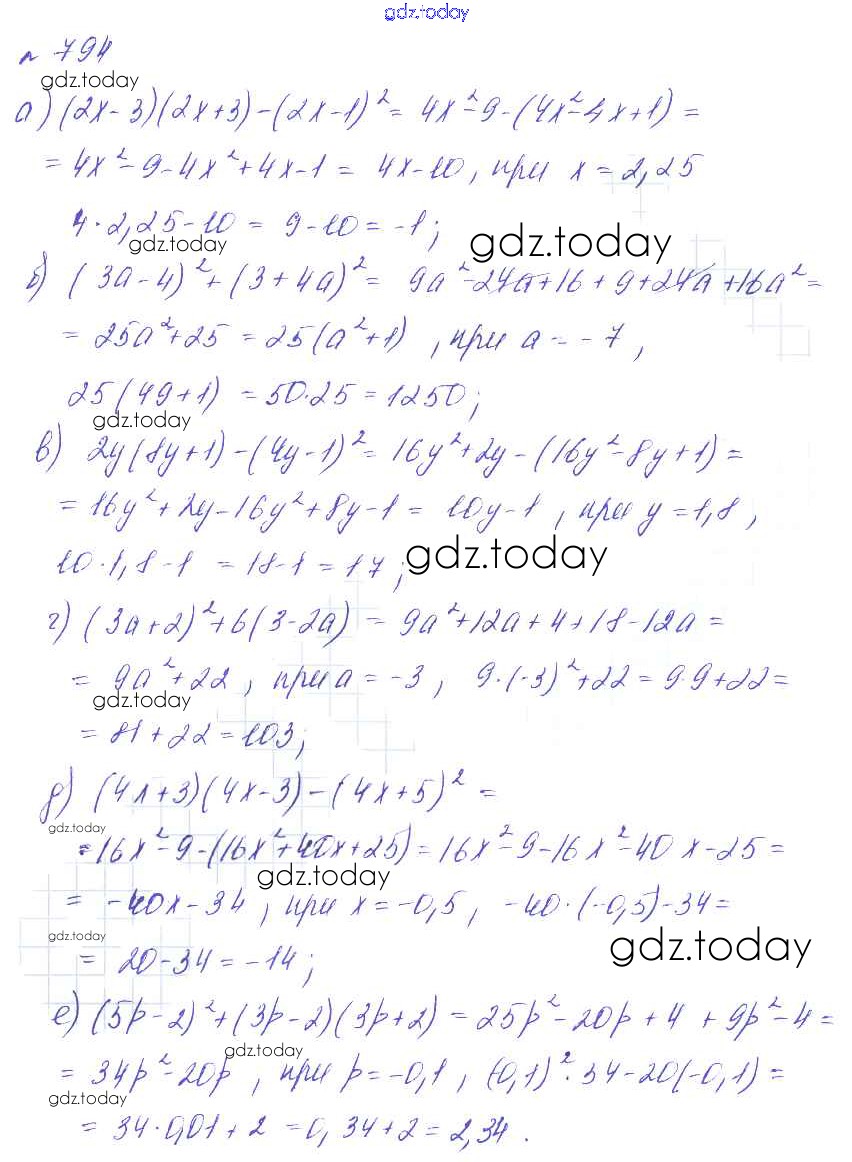 gdz.today
№ 794
gdz.today
а) (2x-3)(2x+3)-(2x-1)² = 4x²-9-(4x²-4x+1) =
= 4x²-9-4x²+4x-1 = 4x-10, при x = 2,25
4·2,25-10 = 9-10 = -1;
gdz.today
gdz.today
б) (3a-4)²+(3+4a)² = 9a²-24a+16+9+24a+16a² =
= 25a²+25 = 25(a²+1), при a = -7,
25(49+1) = 50·25 = 1250;
gdz.today
в) 2y(8y+1)-(4y-1)² = 16y²+2y-(16y²-8y+1) =
= 16y²+2y-16y²+8y-1 = 10y-1, при y = 1,8,
10·1,8-1 = 18-1 = 17;
gdz.today
г) (3a+2)²+6(3-2a) = 9a²+12a+4+18-12a =
= 9a²+22, при a = -3, 9·(-3)²+22 = 9·9+22 =
gdz.today
= 81+22 = 103;
д) (4x+3)(4x-3)-(4x+5)² =
gdz.today
= 16x²-9-(16x²+40x+25) = 16x²-9-16x²-40x-25 =
gdz.today
= -40x-34, при x = -0,5, -40·(-0,5)-34 =
gdz.today
gdz.today
= 20-34 = -14;
е) (5p-2)²+(3p-2)(3p+2) = 25p²-20p+4+9p²-4 =
gdz.today
= 34p²-20p, при p = -0,1, (-0,1)²·34-20(-0,1) =
gdz.today
= 34·0,01+2 = 0,34+2 = 2,34.